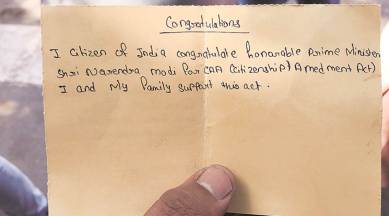 Congratulations
I Citizen of India congratulate honarable Prime Minister
Shri Narendra modi for CAA (Citizenship Amedment Act)
I and My family support this act.